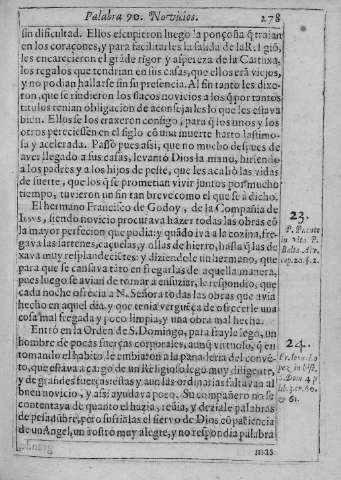 Palabra 90. Novicios. 278
sin dificultad. Ellos escupieron luego la ponçoña q̃ traian
en los coraçones, y para facilitarles la salida de la Religiõ,
les encarecieron el grãde rigor y aspereza de la Cartuxa,
los regalos que tendrian en sus casas, que ellos erã viejos,
y no podian hallarse sin su presencia. Al fin tanto les dixe-
ron, que se rindieron los flacos novicios a los q̃ por tantos
titulos tenian obligacion de aconsejarles lo que les estava
bien. Ellos se los traxeron consigo, para q̃ los unos y los
otros pereciessen en el siglo cõ una muerte harto lastimo-
sa y acelerada. Passò pues assi, que no mucho despues de
aver llegado a sus casas, levantò Dios la mano, hiriendo
a los padres y a los hijos de peste, que les acabò las vidas
de suerte, que los q̃ se prometian vivir juntos por mucho
tiempo, tuvieron un fin tan breve como el que se à dicho.
El hermano Francisco de Godoy, de la Compañia de
Iesvs, siendo novicio procurava hazer todas las obras cõ
la mayor perfecion que podia: y quãdo iva a la cozina, fre-
gava las sartenes, caçuelas, y ollas de hierro, hasta q̃ las de
xava muy resplandeciẽtes: y diziendole un hermano, que
para que se cansava tãto en fregarlas de aquella manera,
pues luego se avian de tornar a ensuziar, le respondio, que
cada noche ofrecia a N. Señora todas las obras que avia
hecho en aquel dia, y que tenia verguẽça de ofrecerle una
cosa mal fregada y poco limpia, y una obra mal hecha.
23.
P. Puente
in vita P.
Balta. Alv.
cap. 20. §. 2.
Entrò en la Orden de S. Domingo, para frayle lego, un
hombre de pocas fuerças corporales, aunq̃ virtuoso, q̃ en
tomando el habito, le embiaron a la panaderia del conṽe-
to, que estava a cargo de un Religioso lego muy diligente,
y de grandes fuerças: estas y aun las ordinarias faltavan al
buen novicio, y assi ayudava poco. Su compañero no se
contentava de quanto el hazia, reñia, y deziale palabras
de pesadũbre, pero sufrialas el siervo de Dios cõ paciencia
de un Angel, un rostro muy alegre, y no respondia palabra
24.
mas